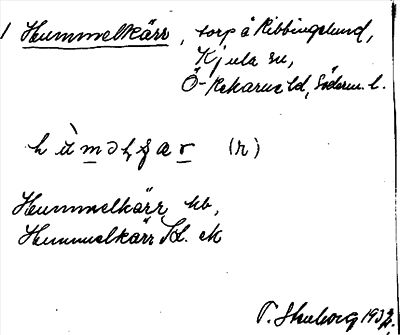 1 Hummelkärr, torp å Ribbingelund,
Kjula sn,
Ö-Rekarne hd, Söderm. l.
(n)
Hummelkärr, hb,
Hummelkärr Kl. ek
T. Skuborg 1932